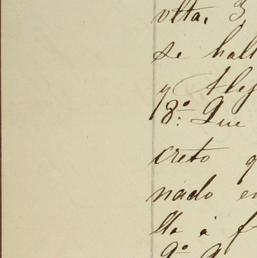 olta, 3
se hall
y Alej
8º: Que
creto q
nado en
lla á f
9º Q